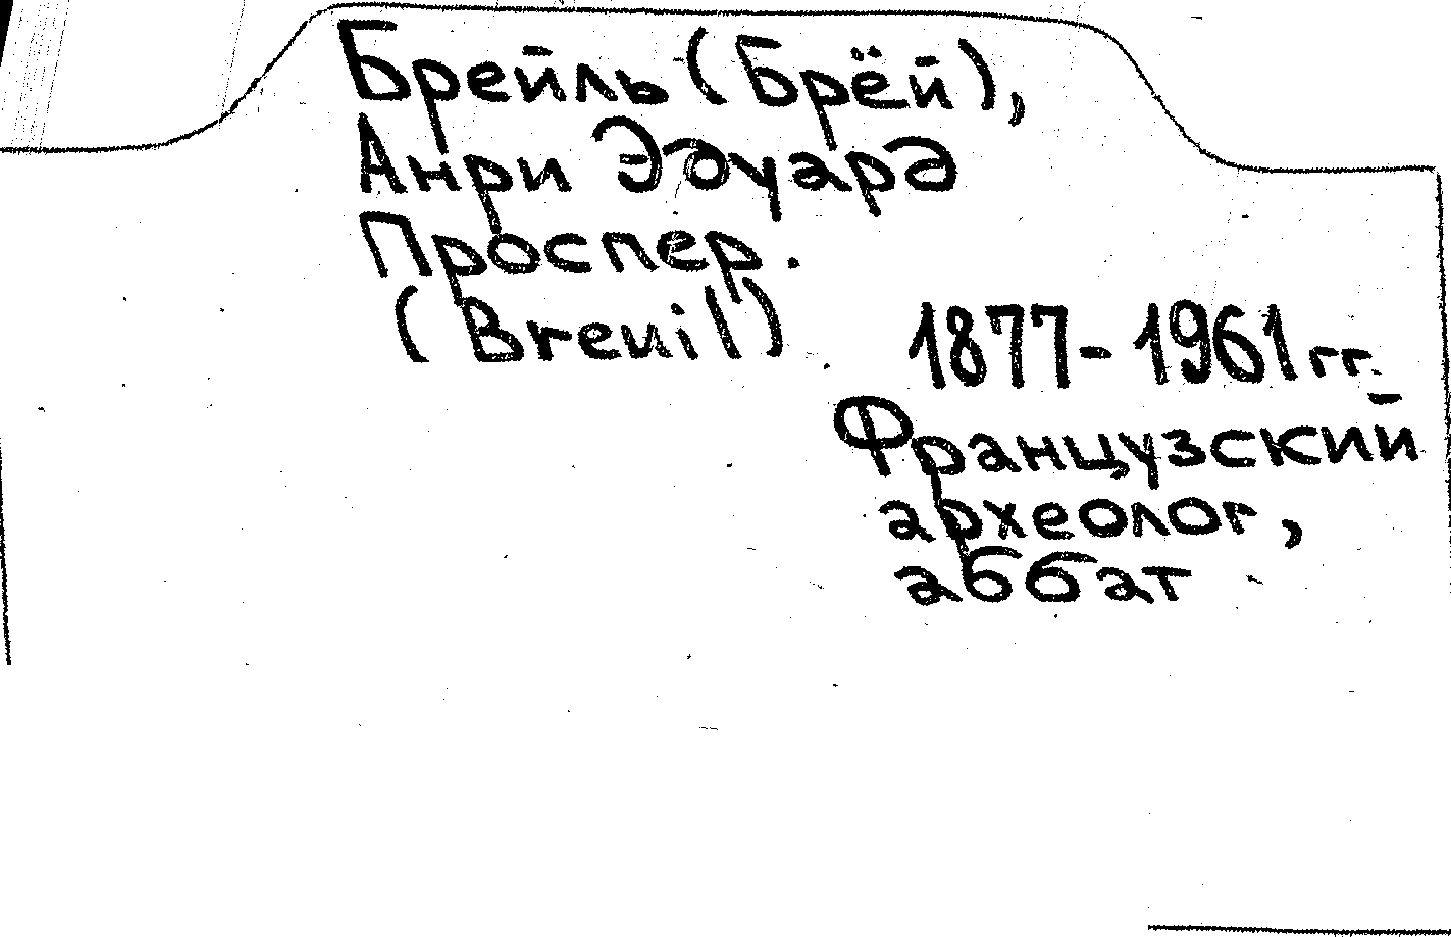 Брейль (Брёй),
Анри Эдуард
Проспер.
(Breuil)
1877-1961 гг.
Французский
археолог,
аббат